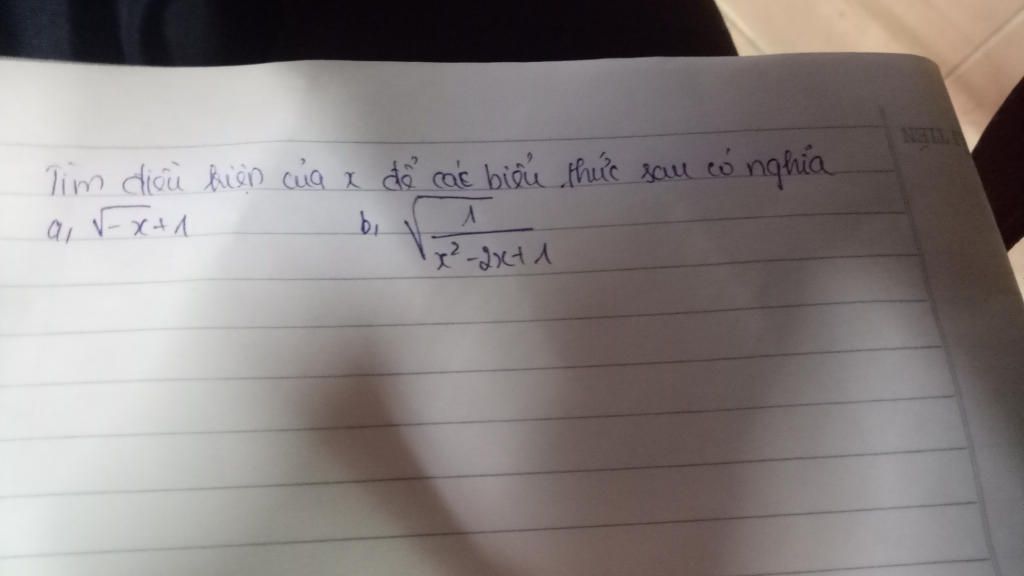 Tìm điều kiện của x để các biểu thức sau có nghĩa
a, √-x+1 b, √1/(x²-2x+1)